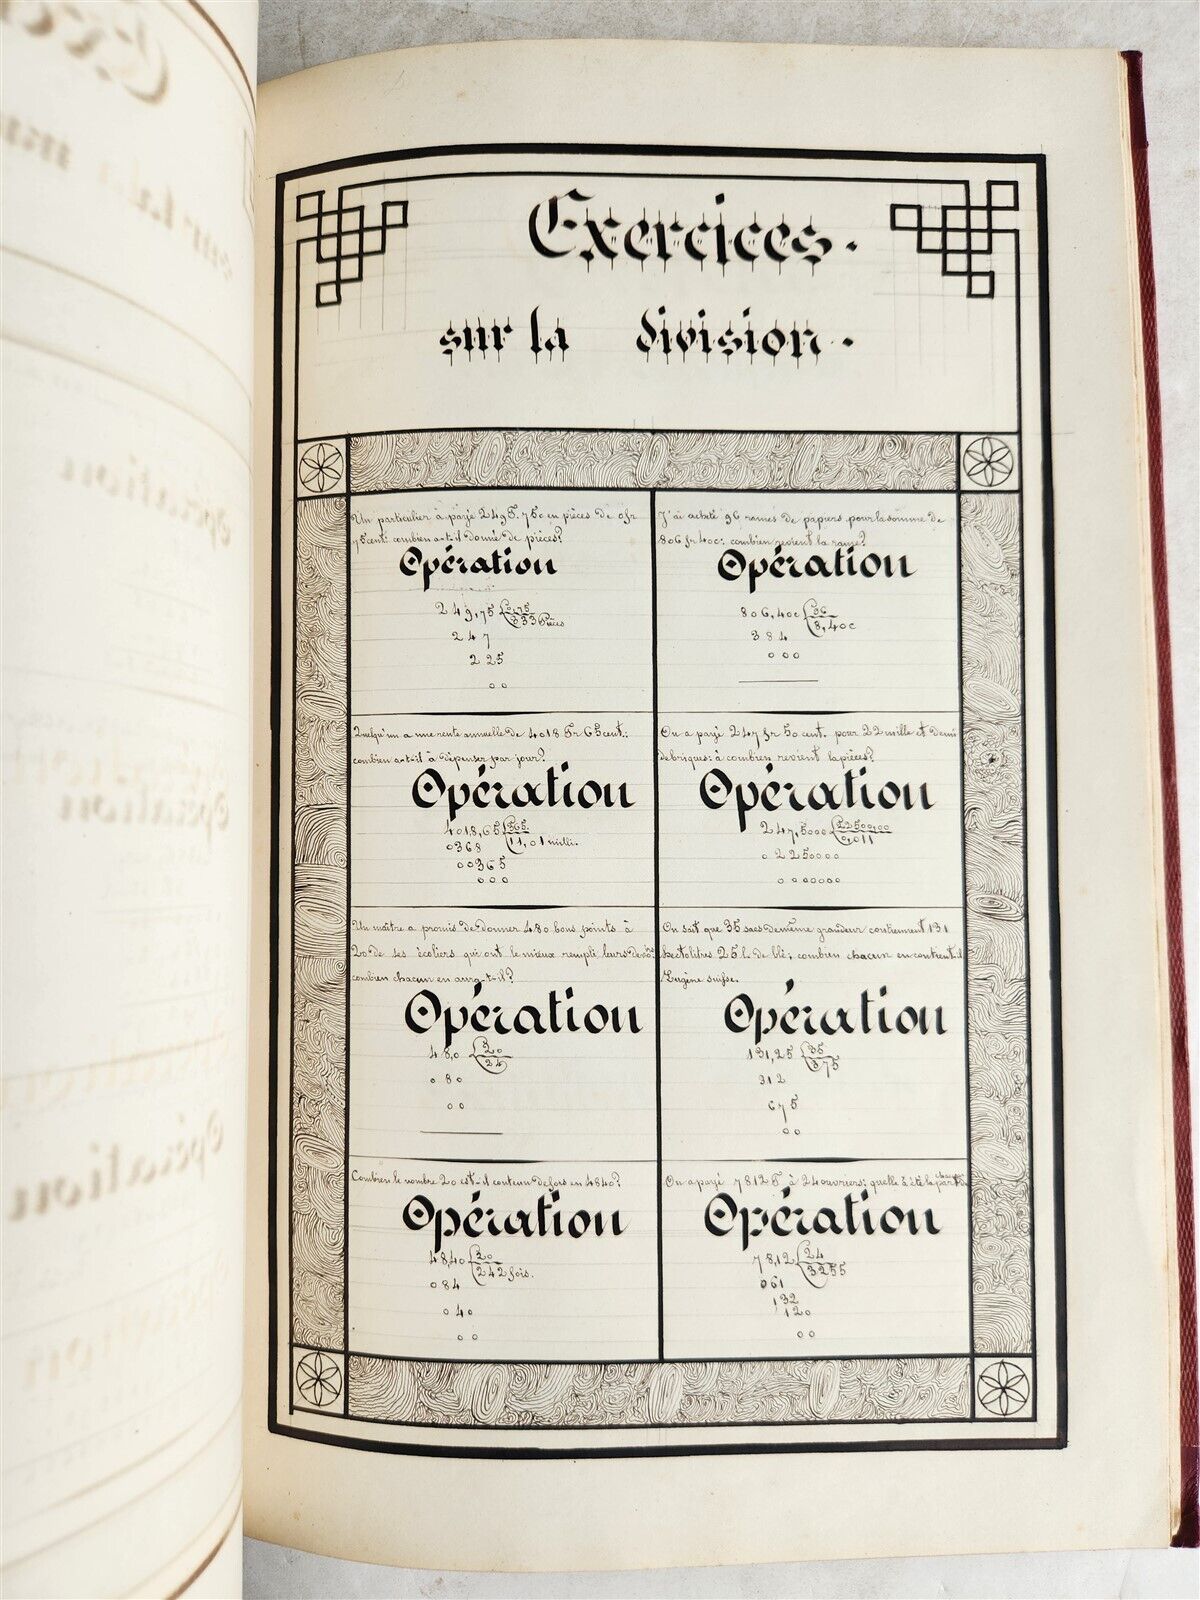 Exercices.
sur la division.
Un particulier à payé 249F. 75c en pièces de 0fr
75cent: combien a-t-il donné de pièces?
Opération
249,75 0,75
333 Pièces
247
225
00
J'ai acheté 96 rames de papiers pour la somme de
806 fr 40c: combien revient la rame?
Opération
806,40c 96
8,40c
384
000
Quelqu'un a une rente annuelle de 4018 Fr 65cent:
combien a-t-il à dépenser par jour?
Opération
4018,65 365.
11,01 milli.
0368
00365
000
On a payé 247 fr 50 cent. pour 22 mille et demi
de briques: à combien revient la pièces?
Opération
247,5000 22500,00
0,011
02250000
0000000
Un maître a promis de donner 480 bons points à
20 de ses écoliers qui ont le mieux rempli leurs
combien chacun en aura-t-il?
Opération
48,0 20
24
080
00
On sait que 35 sacs de même grandeur contiennent 131
hectolitres 25 l. de blé; combien chacun en contient-il
Eugène suisse.
Opération
131,25 35
375
312
675
00
Combien le nombre 20 est-il contenu de fois en 4840?
Opération
48,40 20
242 fois.
084
040
00
On a payé 7812 F à 24 ouvriers: quelle à été la part de chacun
Opération
78,12 24
3255
061
132
120
00